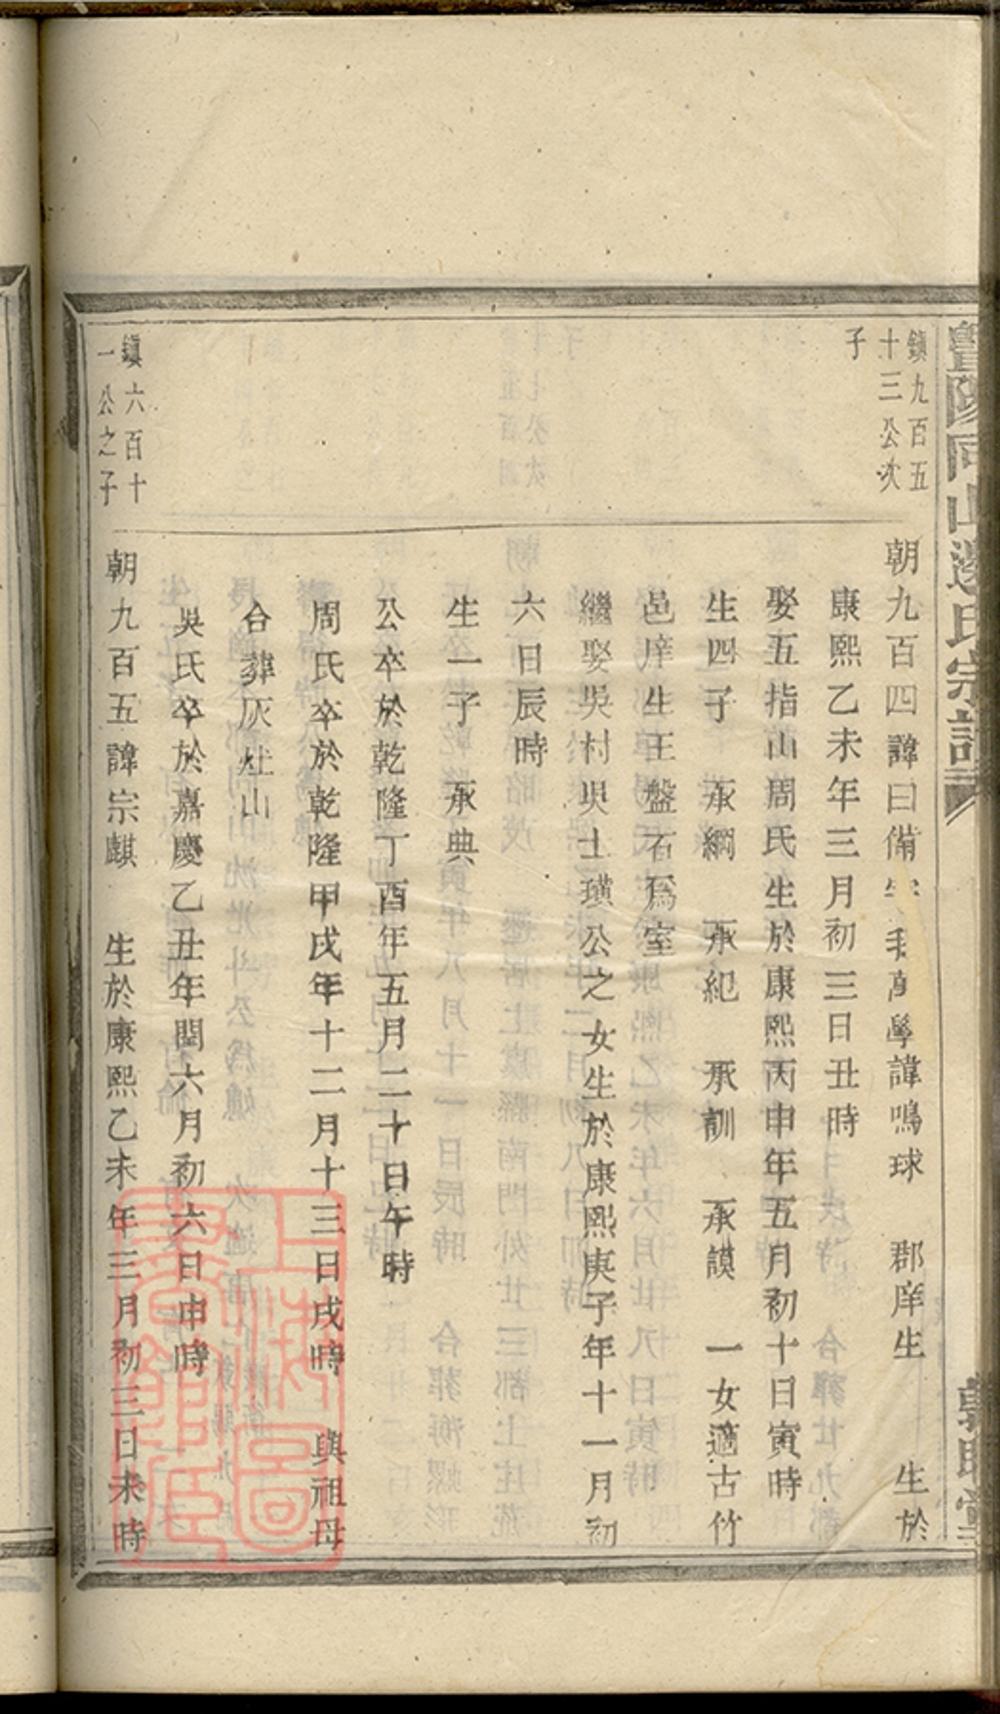 暨陽同山邊氏宗譜
鎮九百五
十三公次
子
朝九百四諱曰備字 學諱鳴球 郡庠生 生於
康熙乙未年三月初三日丑時
娶五指山周氏生於康熙丙申年五月初十日寅時
生四子 承綱 承紀 承訓 承謨 一女適古竹
邑庠生王盤石為室
繼娶吳村吳士璜公之女生於康熙庚子年十一月初
六日辰時
生一子 承典
公卒於乾隆丁酉年五月二十日午時
周氏卒於乾隆甲戌年十二月十三日戌時 與祖母
合葬灰灶山
吳氏卒於嘉慶乙丑年閏六月初六日申時
鎮六百十
一公之子
朝九百五諱宗麒 生於康熙乙未年三月初三日未時
上海圖書館藏